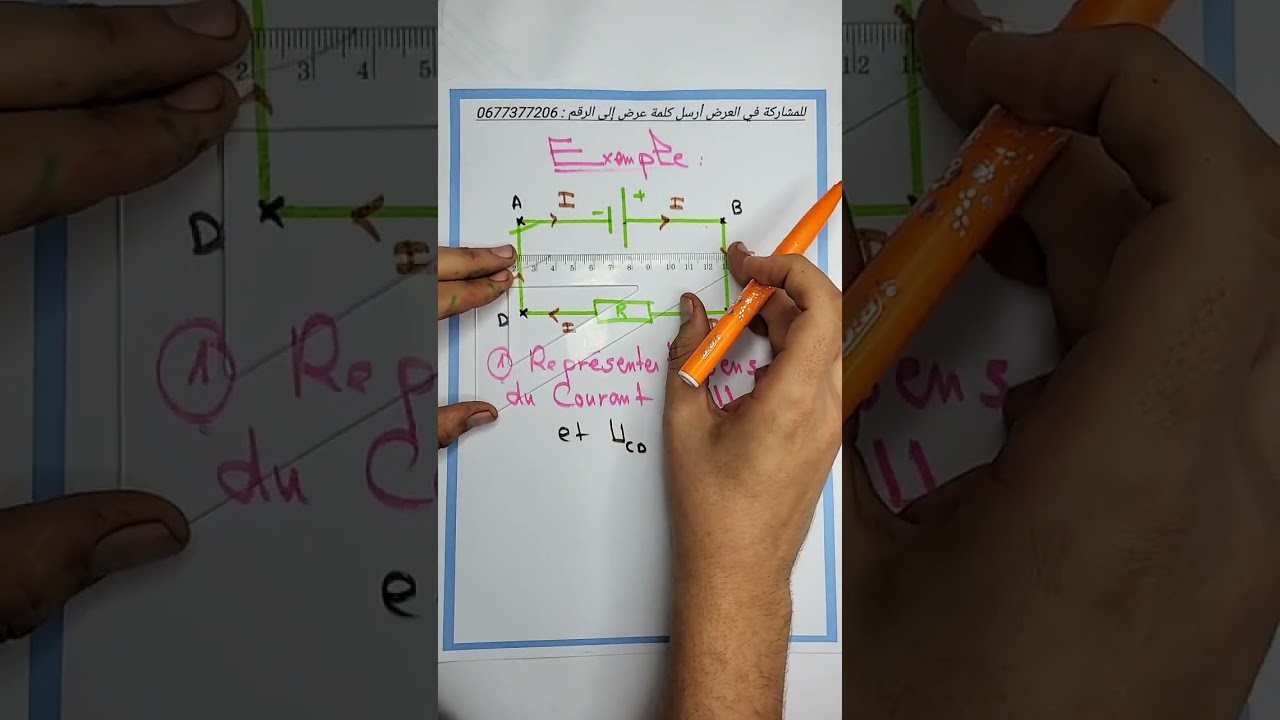 للمشاركة في العرض أرسل كلمة عرض إلى الرقم : 0677377206
Exemple :
A I - + I B
2 3 4 5 6 7 8 9 10 11 12 13
D I R
① Représenter sens
du Courant
et U_CD